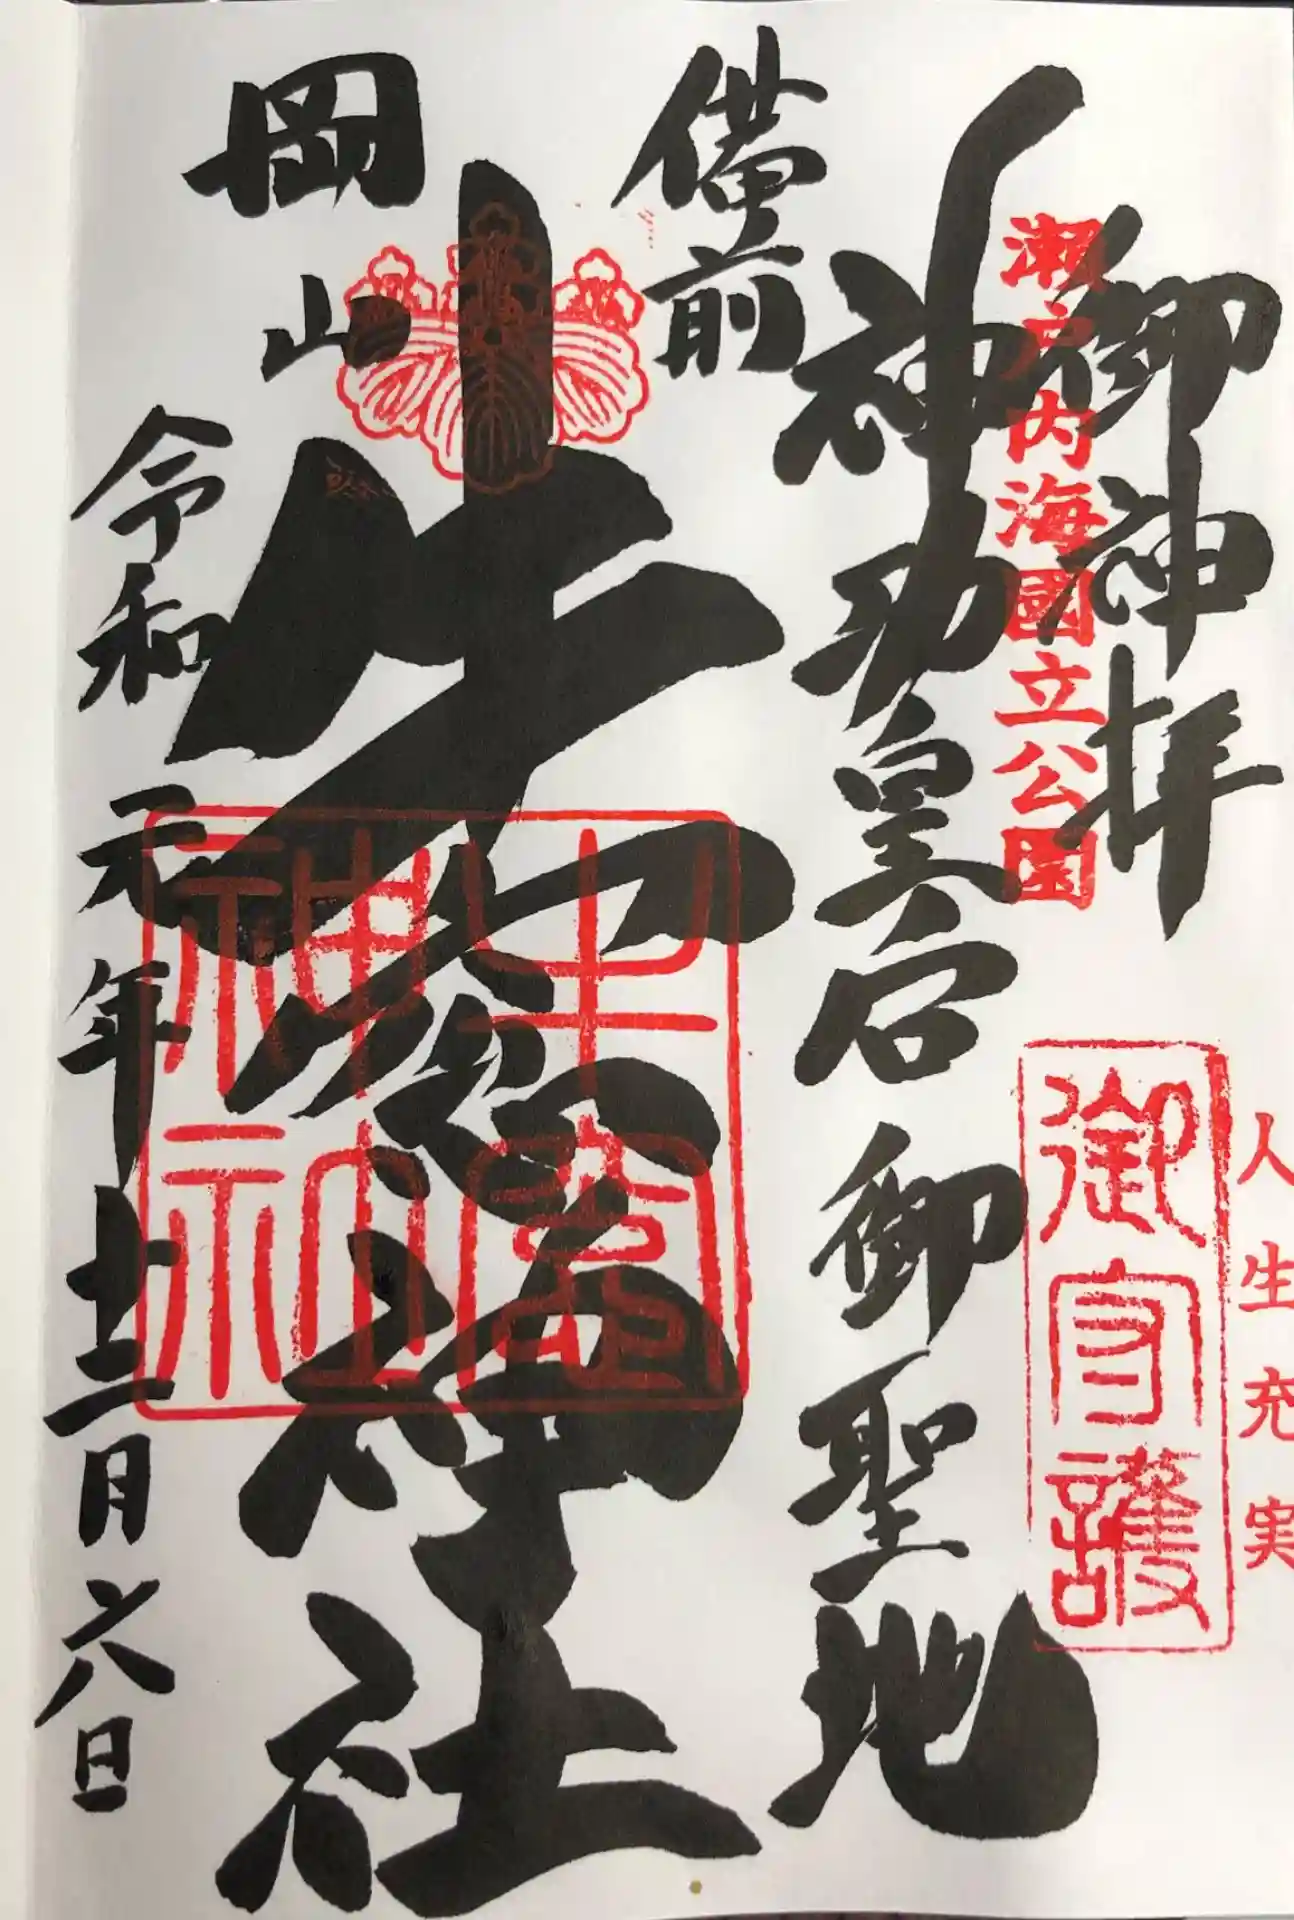 人生充実
御神拝
御守護
瀬戸内海國立公園
神功皇后御聖地
備前
牛窓神社
牛窓神社
岡山
令和元年十二月六日